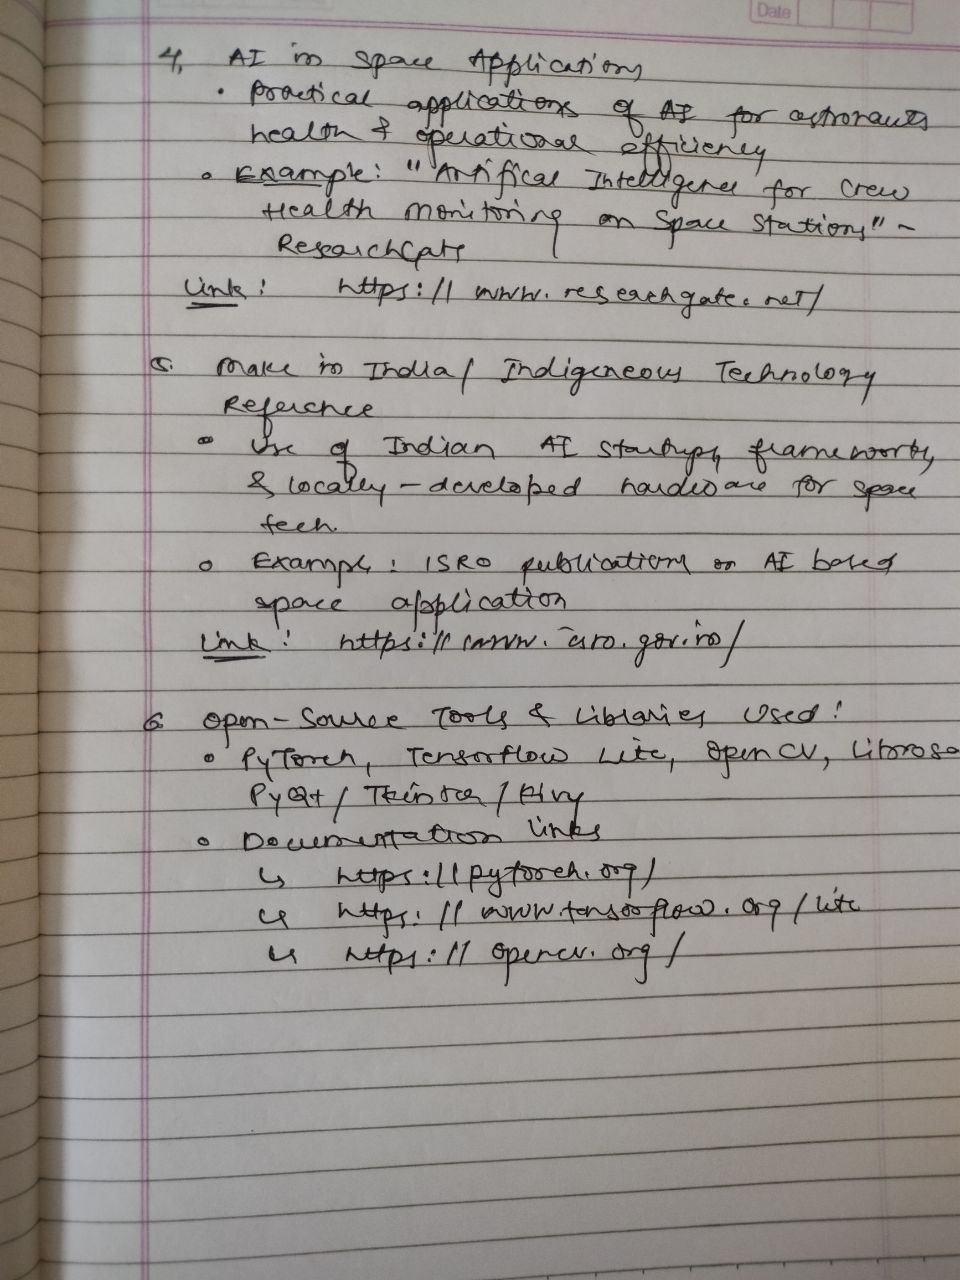 Date
4. AI in Space Applications
• Practical applications of AI for astronauts
health & operational efficiency
• Example: "Artifical Intelligence for Crew
Health Monitoring on Space Stations" ~
ResearchGate
Link: https://www.researchgate.net/
5. Make in India / Indigeneous Technology
Reference
• Use of Indian AI startups, frameworks,
& locally-developed hardware for space
tech.
• Example: ISRO publications on AI based
space application
Link: https://www.isro.gov.in/
6. Open-Source Tools & Libraries Used:
• PyTorch, Tensorflow Lite, OpenCV, Librosa
PyQt / Tkinter / Kivy
• Documentation links
↳ https://pytorch.org/
↳ https://www.tensorflow.org/lite
↳ https://opencv.org/